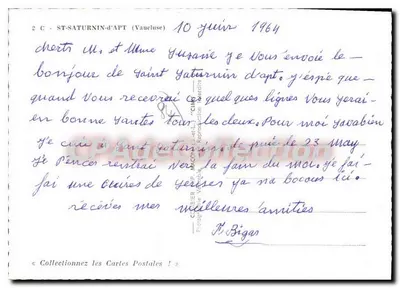 2 C - ST-SATURNIN-d'APT (Vaucluse)
10 juin 1964
cherts M. et Mme Susane je vous envoie le
bonjour de Saint Saturnin d'apt. j'éspè que
quand vous recevrai ces quelques lignes vous serai
en bonne santés tous les deux. Pour moi savabien
je suis à Saint saturnin depuie de 23 may
Je pences rentrai vers la fain du moi. je fai
fai une cures de serises ya na bocous ici.
recevés mes meilleures amities
F. Bigas
« Collectionnez les Cartes Postales ! »